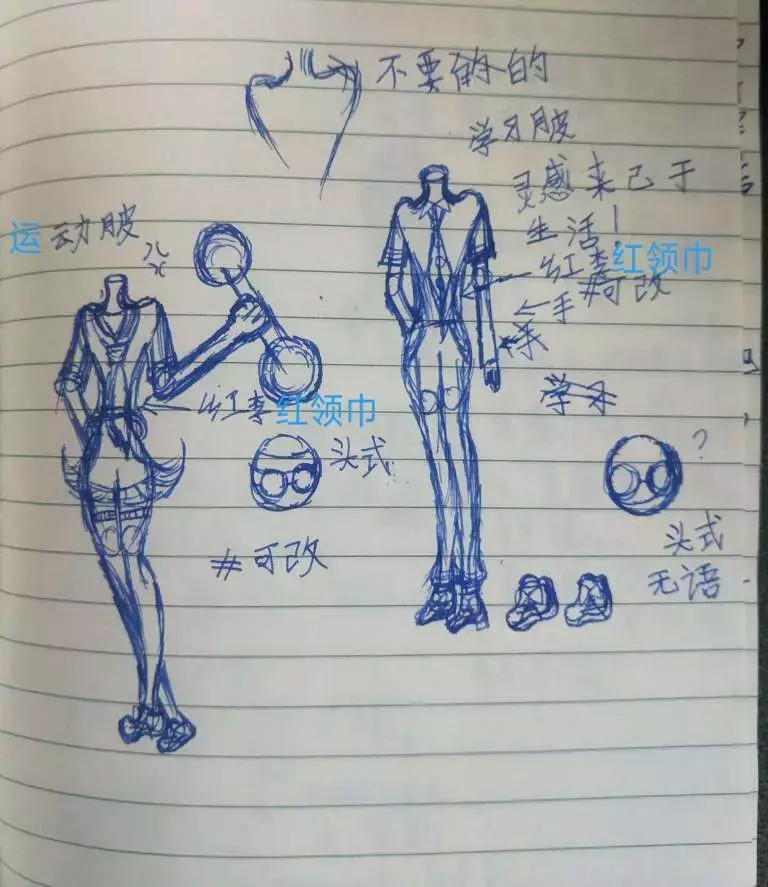 不要的
学习皮
灵感来己于
生活!
运动皮
红李红领巾
#可改
←手
手
红李红领巾
学习
头式
?
头式
无语
#可改